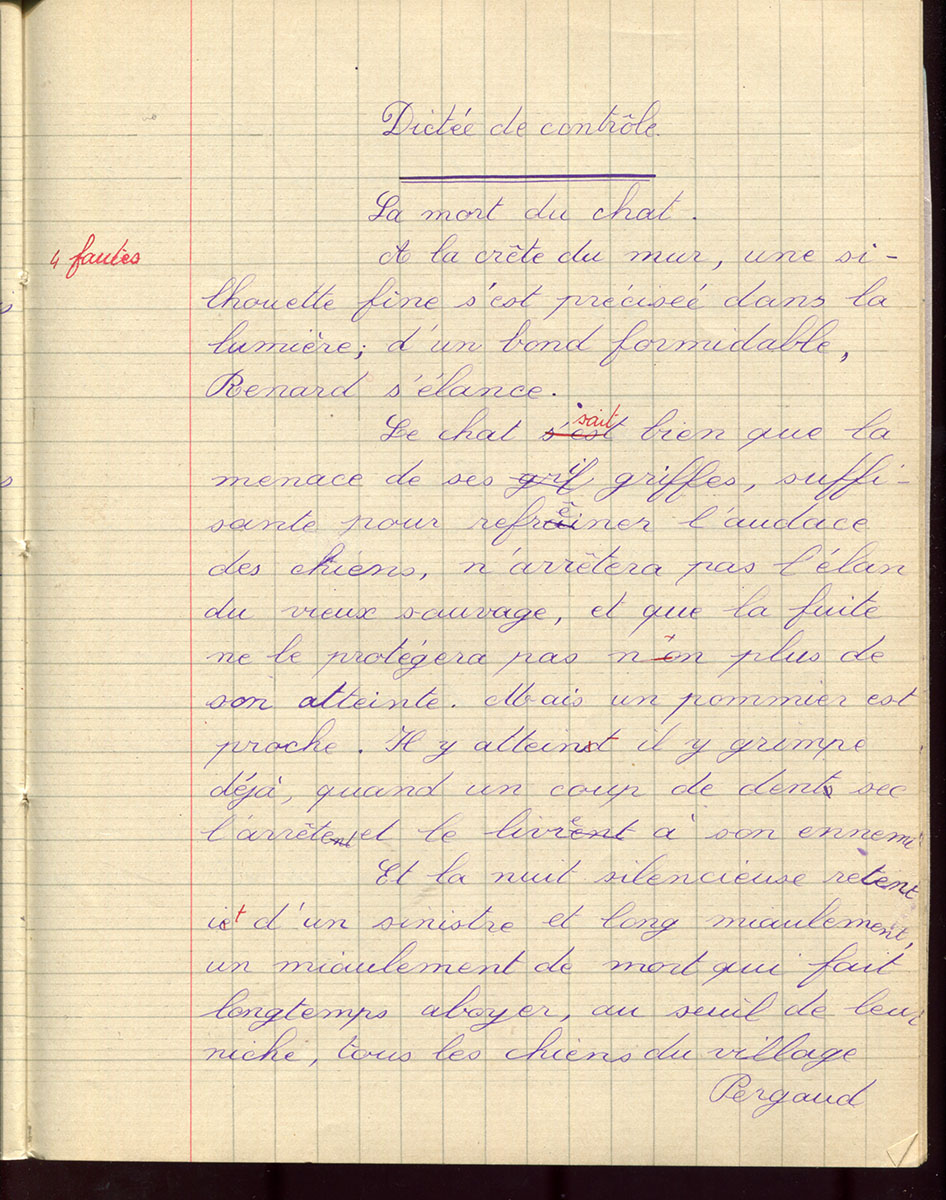 Dictée de contrôle.
La mort du chat.
4 fautes
A la crête du mur, une si-
lhouette fine s'est préciseé dans la
lumière; d'un bond formidable,
Renard s'élance.
Le chat s'est sait bien que la
menace de ses grif griffes, suffi-
sante pour refréiner l'audace
des chiens, n'arrêtera pas l'élan
du vieux sauvage, et que la fuite
ne le protégera pas n'on plus de
son atteinte. Mais un pommier est
proche. Il y atteint il y grimpe
déjà, quand un coup de dents sec
l'arrêtent et le livrent à son ennemi
Et la nuit silencieuse retent
it d'un sinistre et long miaulement,
un miaulement de mort qui fait
longtemps aboyer, au seuil de leur
niche, tous les chiens du village
Pergaud